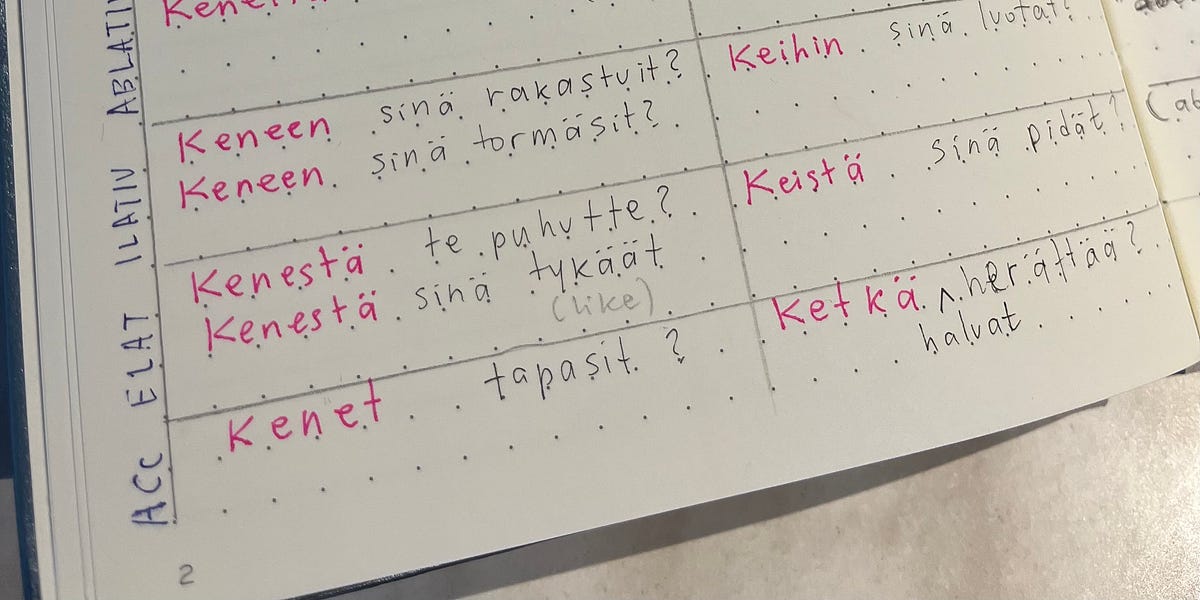 ABLATIV
Keneen sinä rakastuit?
Keneen sinä tormäsit?
Keihin sinä luotat?
ILATIV
Kenestä te puhutte?
Kenestä sinä tykäät
(like)
Keistä sinä pidät?
ELAT
Kenet tapasit?
Ketkä ^ herättää?
halvat
ACC
2